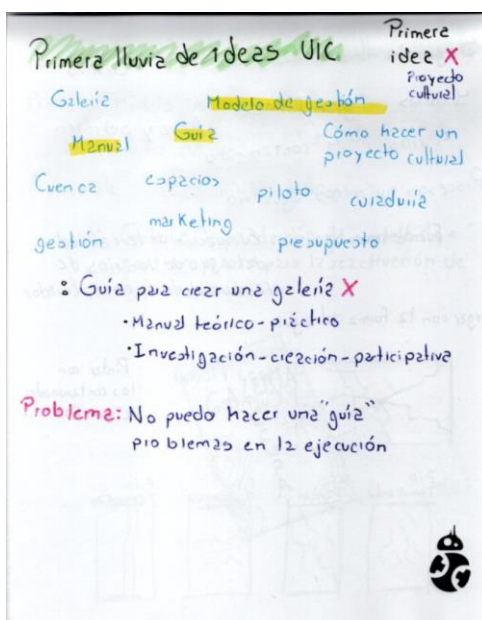 Primera lluvia de ideas UIC
Primera
idea X
Proyecto
cultural
Galería
Modelo de gestión
Manual
Guía
Cómo hacer un
proyecto cultural
Cuenca
espacios
piloto
curaduría
marketing
gestión
presupuesto
: Guía para crear una galería X
• Manual teórico-práctico
• Investigación-creación-participativa
Problema: No puedo hacer una "guía"
problemas en la ejecución